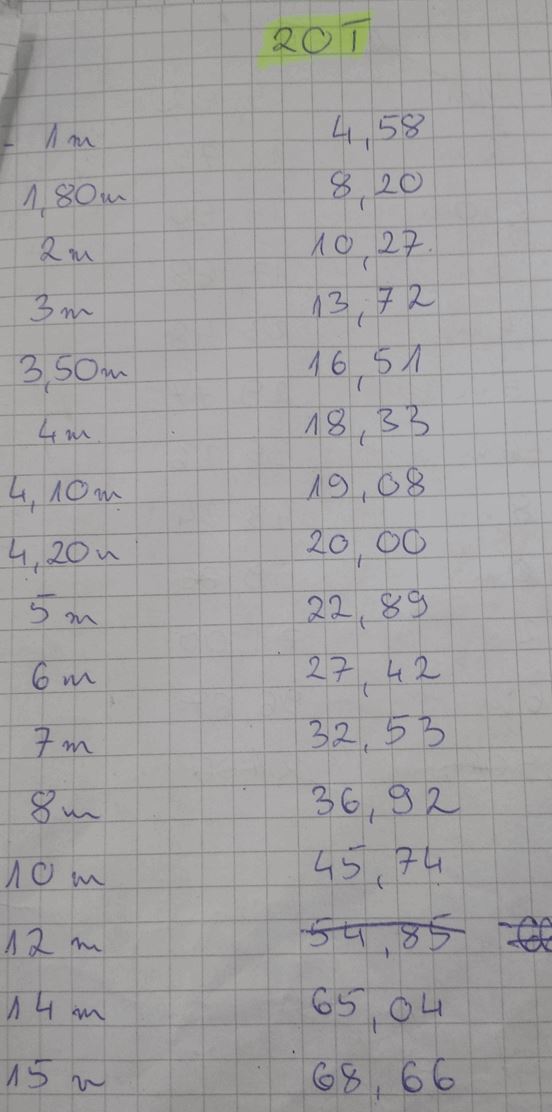 20T
- 1m 4,58
1,80m 8,20
2m 10,27
3m 13,72
3,50m 16,51
4m 18,33
4,10m 19,08
4,20m 20,00
5m 22,89
6m 27,42
7m 32,53
8m 36,92
10m 45,74
12m 54,85
14m 65,04
15m 68,66